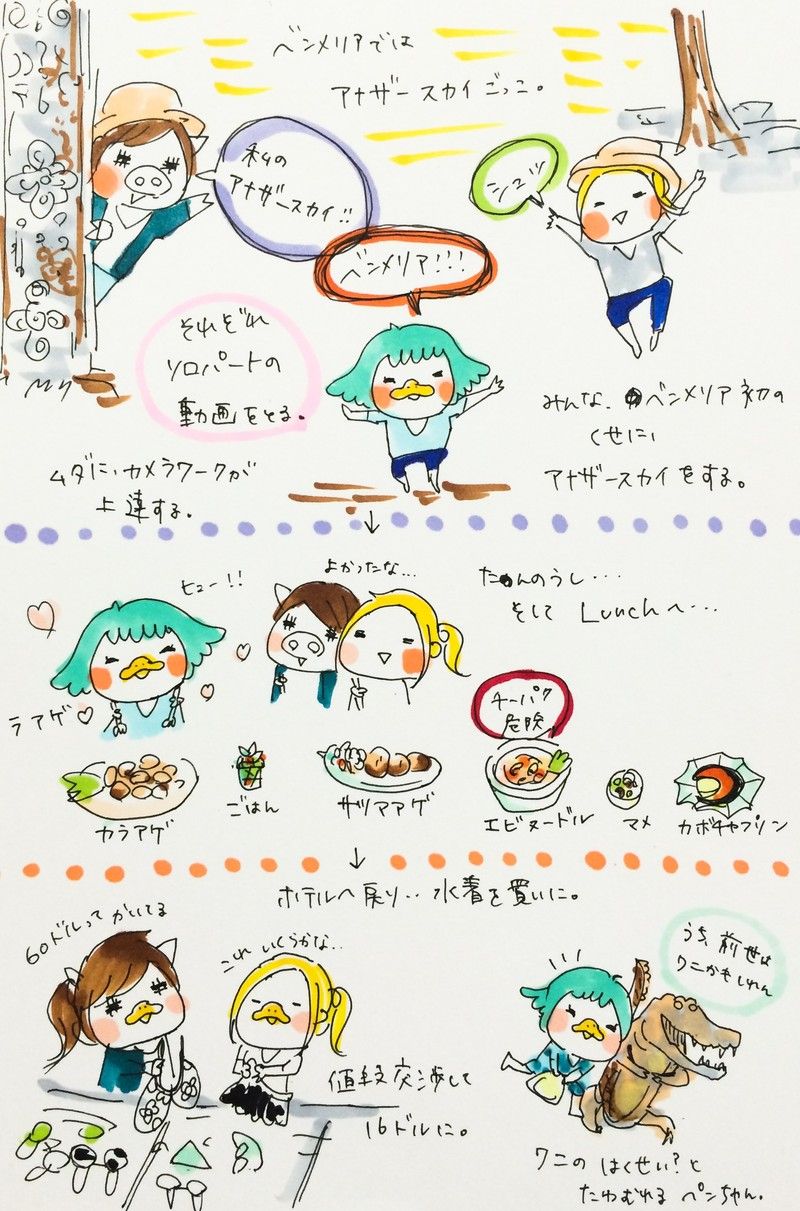 ベンメリアでは
アナザースカイごっこ。
私の
アナザースカイ!!
シュッ
ベンメリア!!!
それぞれ
ソロパートの
動画をとる。
みんな、ベンメリア初の
くせに、
アナザースカイをする。
ムダに、カメラワークが
上達する。
↓
ヒュー!!
よかったな…
たんのうし…
そして Lunchへ…
ラアゲ♡
チーパク
危険
カラアゲ
ごはん
サツマアゲ
エビヌードル
マメ
カボチャプリン
↓
ホテルへ戻り‥水着を買いに。
60ドルって かいてる
これ いくらかな…
うち、前世は
ワニかもしれん
値段交渉して
16ドルに。
ワニの はくせい?と
たわむれる ペンちゃん。